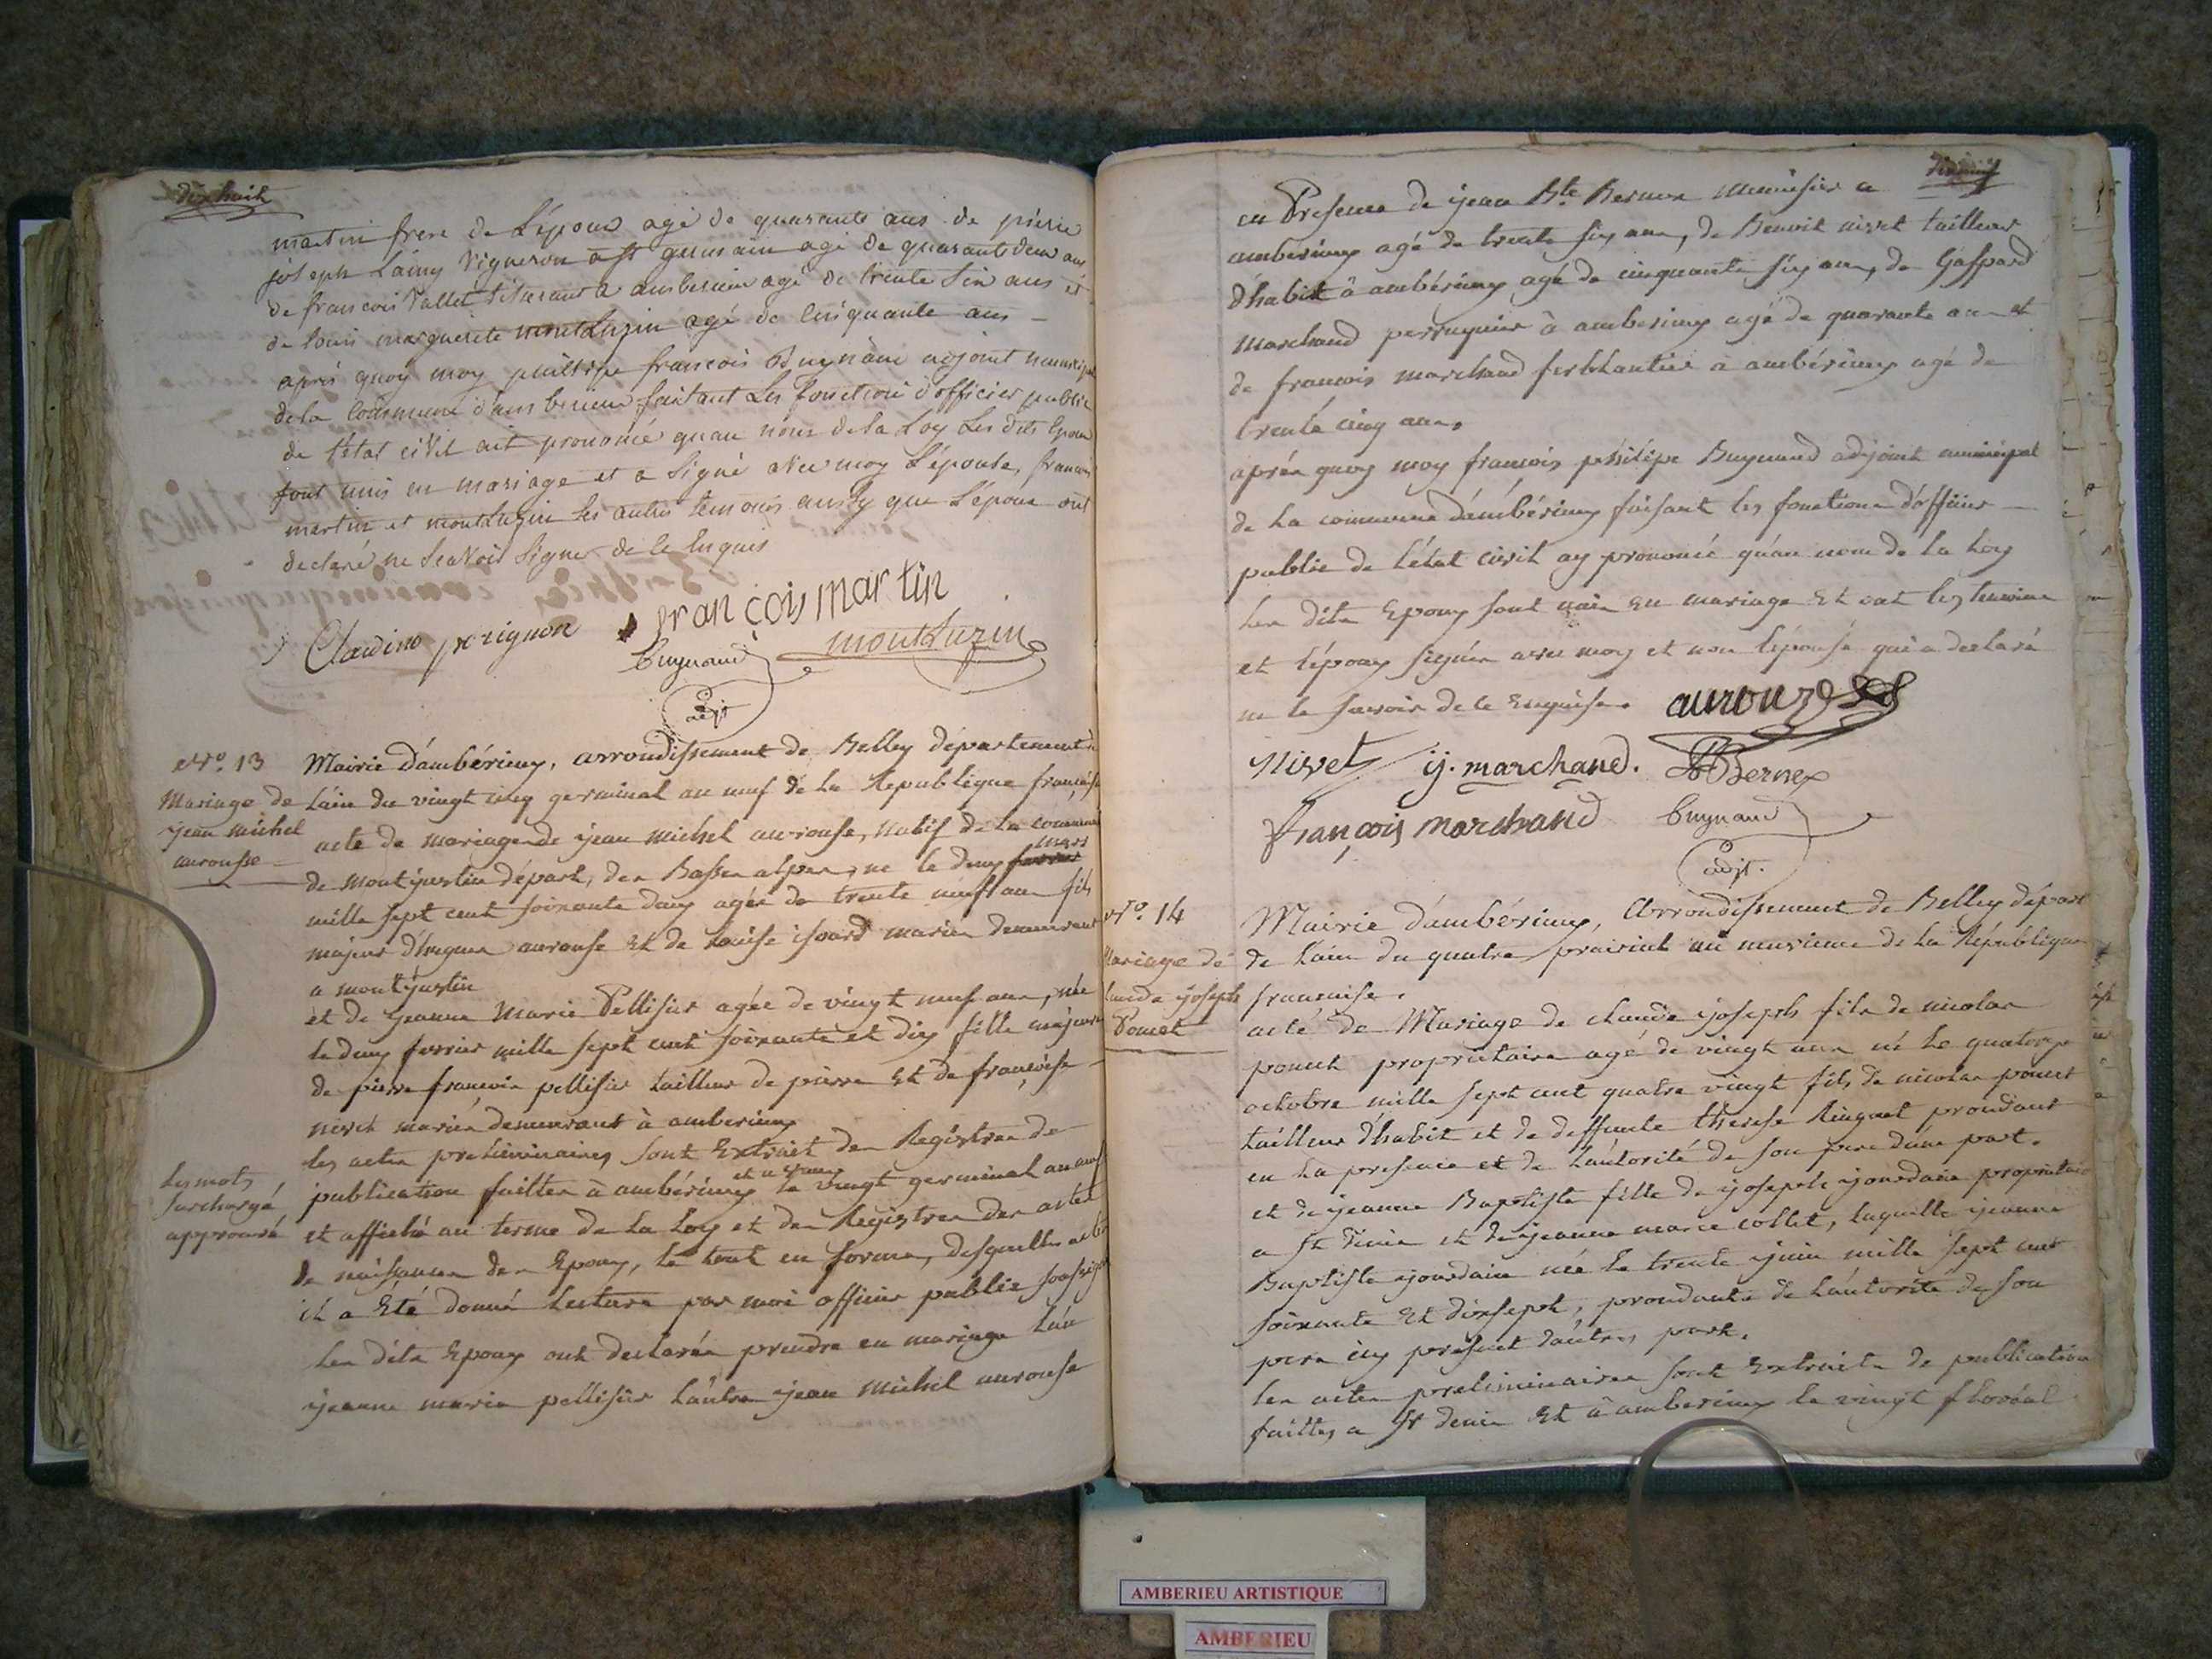 dixhuit
martin frere de L'époux agé de quarante ans de pierre
joseph Lainy vigneron a st germain agé de quarante deux ans
de francois vallet tisserant a amberieu agé de trente six ans et
de louis marguerite montLuzin agé de cinquante ans
aprés quoy moy philippe francois Bugnand adjoint municipal
de la commune d'amberieux faisant Les fonctions d'officier public
de l'état civil ait prononcé quau nom de la Loy Les dits Epoux
sont unis en mariage et a signé avec moy L'épouse, francois
martin et montLuzin les autres temoins ausy que L'époux ont
declaré ne scavoir signer de ce enquis
Claudine perignon françois martin
Bugnand montLuzin
adjt
N°. 13
Mariage de
jean michel
aurousse
Mairie d'ambérieux, arrondissement de Belley département de
Lain du vingt cinq germinal an neuf de la Republique française
acte de mariage de jean michel aurouse, natif de la commune
de montjustin départ, des Basses alpes, né le deux mars
mille sept cent soixante deux agée de trente neuf ans fils
majeur d'hugues aurouse et de Louise isoard mariés demeurant
a montjustin
et de jeanne Marie Pellisier agée de vingt neuf ans, née
le deux fevrier mille sept cent soixante et dix fille majeure
de pierre françois pellisier tailleur de pierre et de françoise
nivet mariés demeurant à amberieux
les actes preliminaires sont Extrait des Régistres de
publication faittes à ambérieux le vingt germinal an neuf
et affiché au terme de la Loy et des Registres des actes
de naissances des Epoux, le tout en forme, desquelles actes
il a Eté donné lecture par moi officier public soussigné
Les dits Epoux ont declarés prendre en mariage L'un
jeanne marie pellisier L'autre jean michel aurouse
Les mots
surchargé
approuvé
en Presence de jean Bte Bernex Menuisier a
amberieux agé de trente six ans, de Benoit nivet tailleur
d'habit à ambérieux agé de cinquante six ans, de Gaspard
Marchand perruquier à amberieux agé de quarante ans et
de francois marchand ferblantier à ambérieux agé de
trente cinq ans.
aprés quoy moy francois philipe Bugnand adjoint municipal
de la commune d'ambérieux faisant les fonctions d'officier
public de L'état civil ay prononcé qu'au nom de la Loy
Les dits Epoux sont unis en mariage Et ont les temoins
et l'époux signés avec moy et non L'épouse qui a declaré
ne le savoir de ce Enquise. aurouze
Nivet ij. marchand. JB Bernex
françois marchand Bugnand
adjt.
N°. 14
Mariage de
Claude joseph
Poncet
Mairie d'ambérieux, Arrondissement de Belley départ
de Lain du quatre prairial an neuvieme de la République
francaise.
acté de Mariage de claude joseph fils de nicolas
poncet propriétaire agé de vingt ans né le quatorze
octobre mille sept cent quatre vingt fils de nicolas poncet
tailleur d'habit et de deffunte therese Ringuet procédant
en la presence et de L'autorité de son pere d'une part.
et de jeanne Baptiste fille de joseph jourdain propriétaire
a St denis et de jeanne marie collet, laquelle jeanne
Baptiste jourdain née le trente juin mille sept cent
soixante Et dixsept, procedante de L'autorité de son
pere icy présent d'autres part.
les actes preliminaires sont Extraits de publication
faittes a St denis Et à amberieux le vingt floréal
AMBERIEU ARTISTIQUE
AMBERIEU